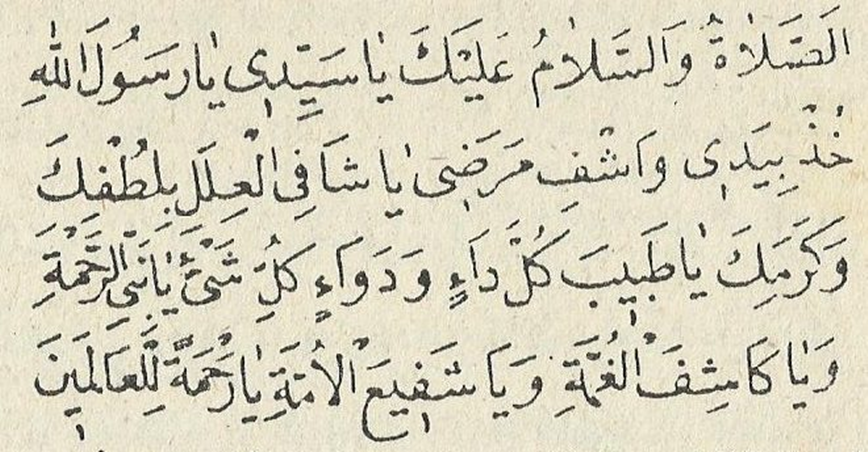 اَلصَّلٰاةُ وَالسَّلٰامُ عَلَيْكَ يٰا سَيِّدِى يٰا رَسُولَ اللّٰهِ
خُذْ بِيَدِى وَاشْفِ مَرَضِى يٰا شَافِى الْعِلَلِ بِلُطْفِكَ
وَكَرَمِكَ يٰا طَبِيبَ كُلِّ دَاۤءٍ وَدَوَاۤءِ كُلِّ شَىْءٍ يٰا نَبِىَّ الرَّحْمَةِ
وَيٰا كَاشِفَ الْغُمَّةِ وَيَا شَفِيعَ الْاُمَّةِ يٰا رَحْمَةً لِلْعَالَمِينَ